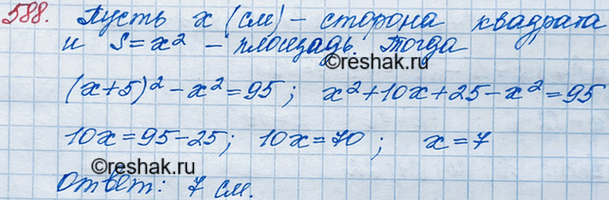 588. Пусть x (см) - сторона квадрата
и S=x² - площадь. Тогда
(x+5)² - x² = 95; x²+10x+25-x²=95
©reshak.ru
10x=95-25; 10x=70; x=7
©reshak.ru
Ответ: 7 см.